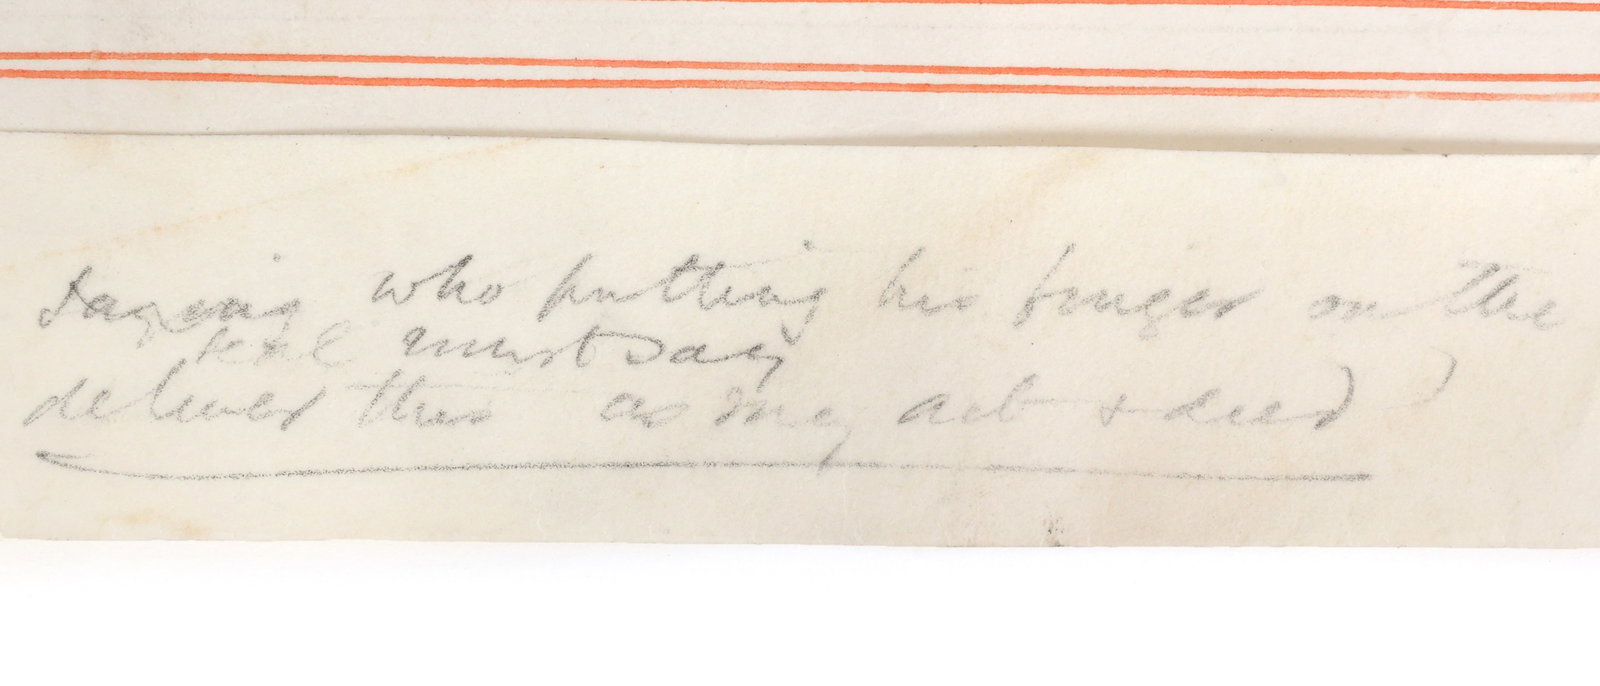 saying who putting his finger on the
seal must say
deliver this as my act & deed )